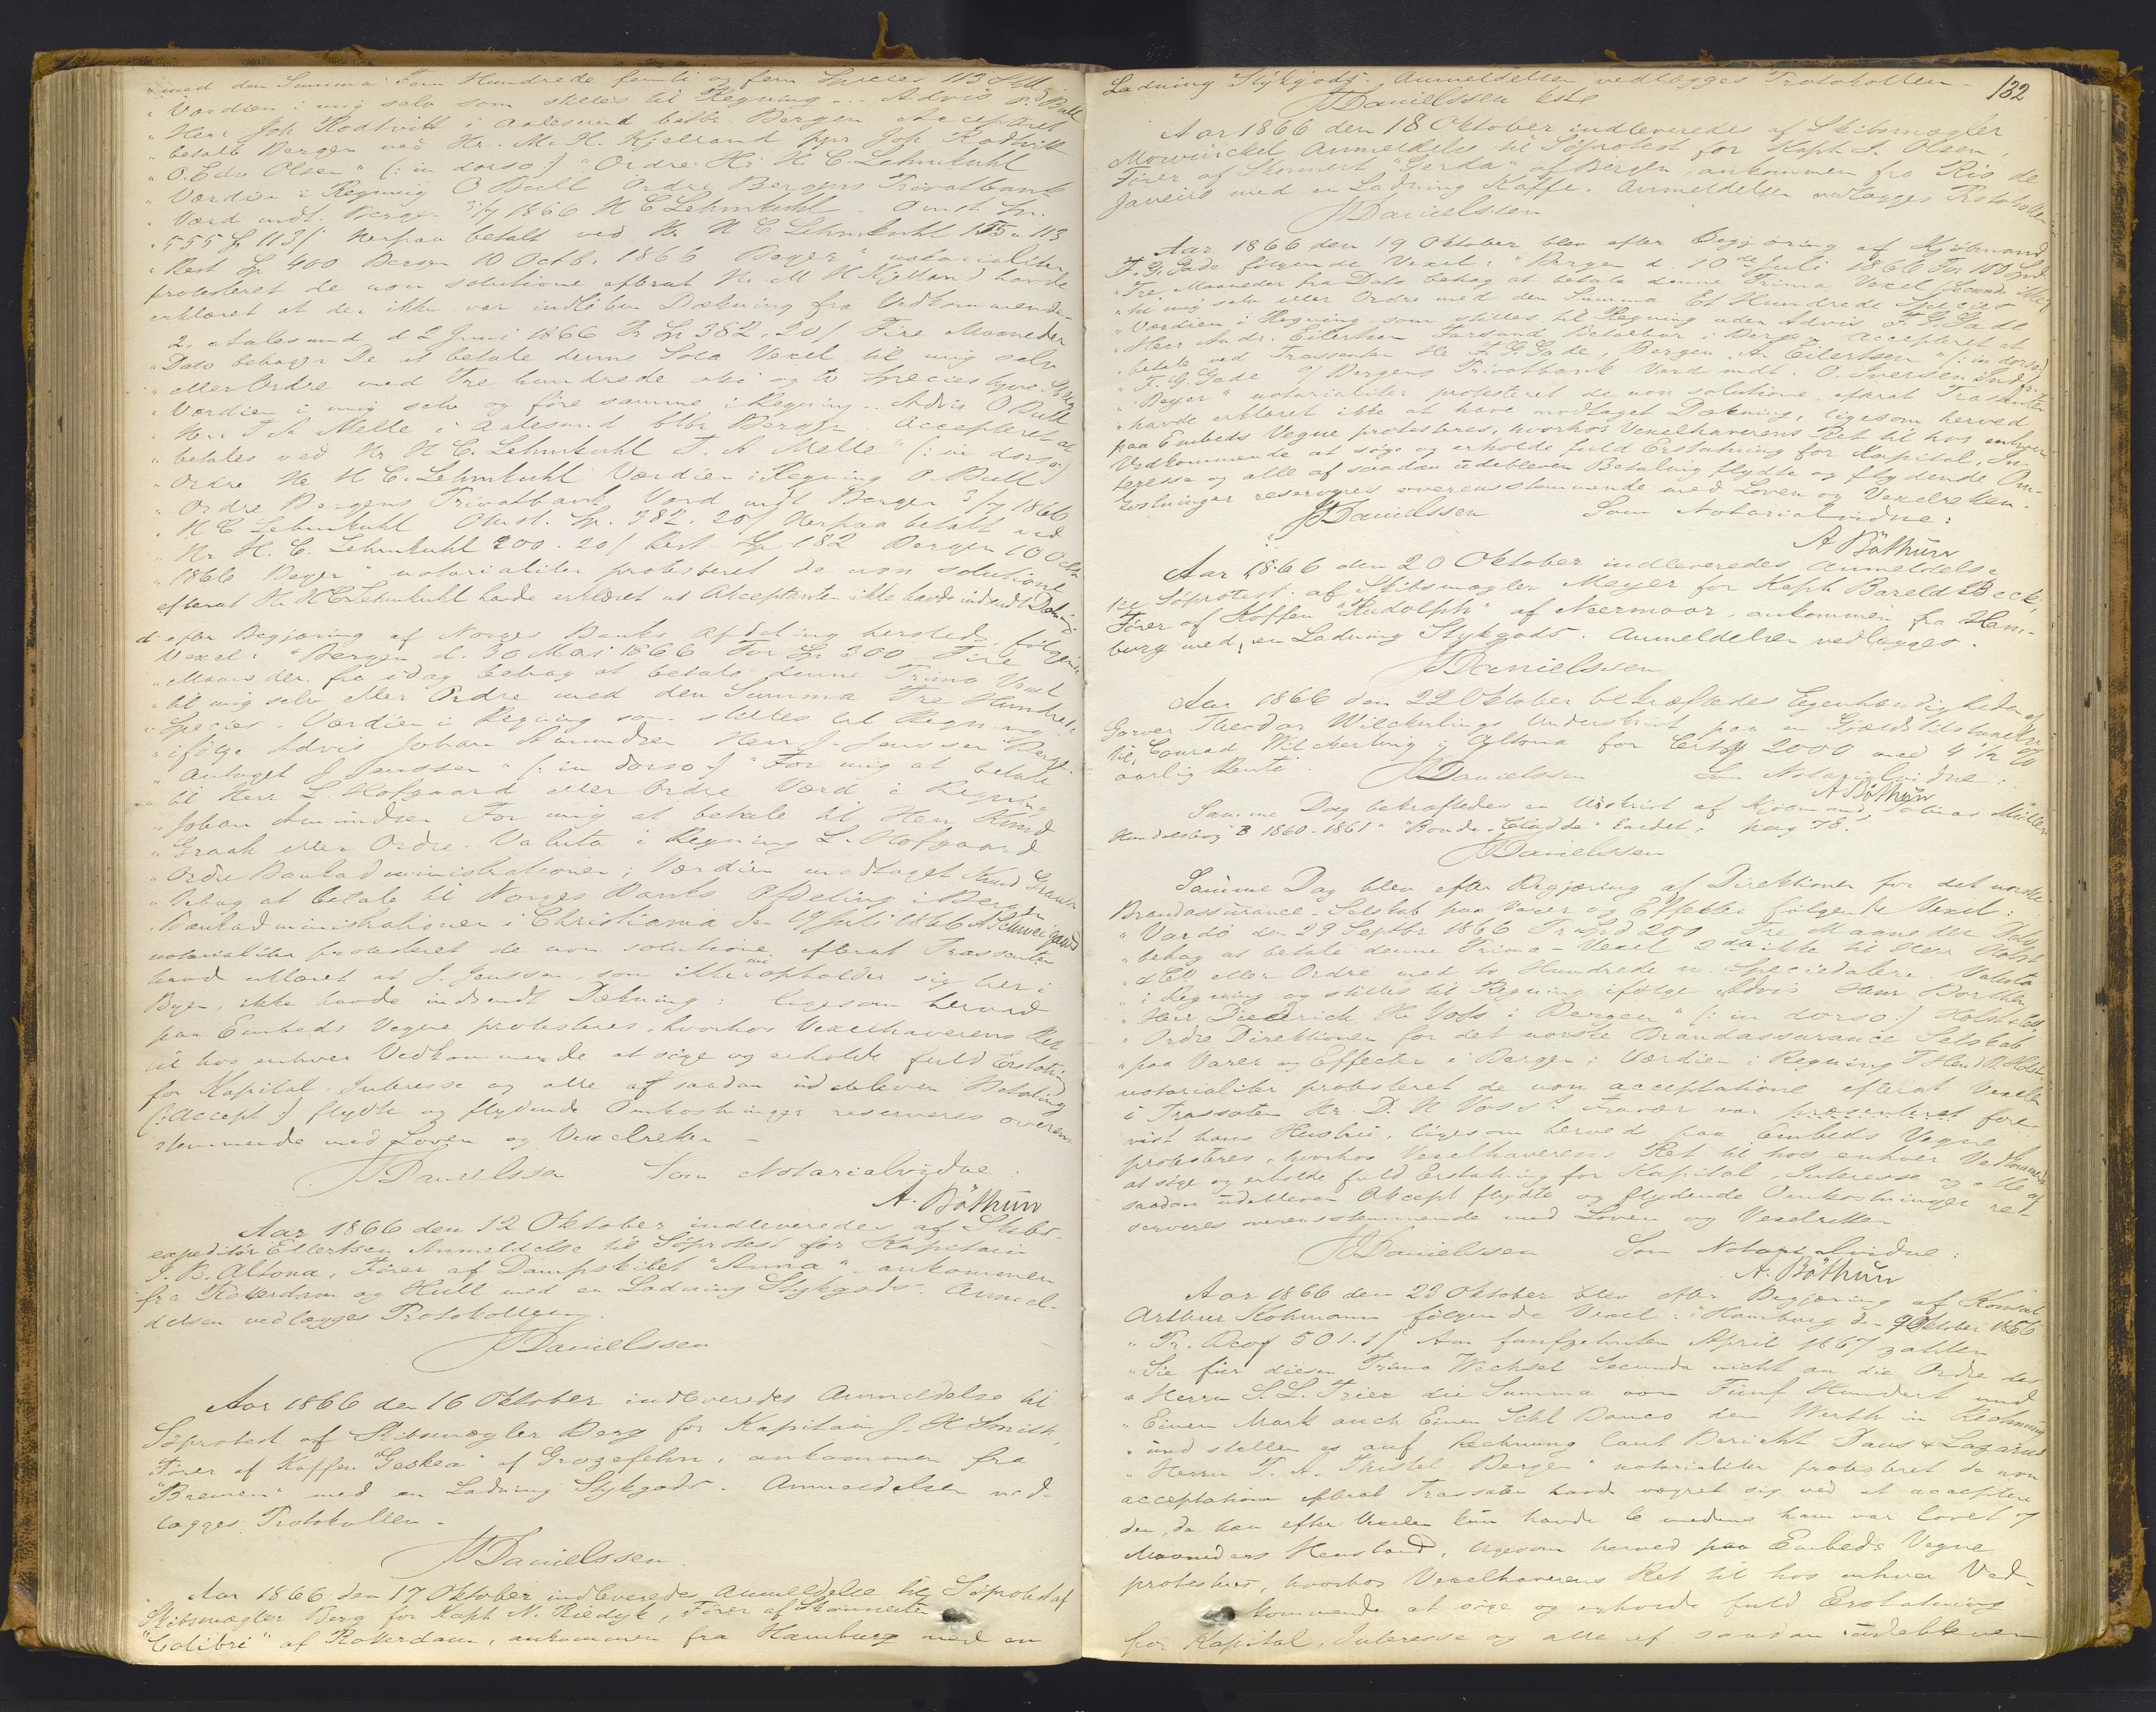 "med den Summa Fem Hundrede femti og fem Species 113 Skill
"Værdien i mig selv som stilles til Regning .. Advis O. Bull
"Herr Joh Rodtvitt i Aalesund betbr. Bergen Accepteret
"betalt Bergen ved Hr. M. H. Kjelland Joh Rodtvitt
"O. Edv Olsen" (: in dorso :) "Ordre Hr H. C. Lehmkuhl
"Værdien i Regning O Bull Ordre Bergens Privatbank
"Værd mdt. Bergen 3/7 1866 H C Lehmkuhl
"555 113 ß Herpaa betalt ved Hr H C Lehmkuhl 155 " 113
"Rest Sp 400 Bergen 10 Octb. 1866 Beyer" notarialiter
protesteret de non solutione efterat Hr M H Kjelland havde
erklæret at der ikke var indløben Dækning fra Vedkommende
2. Aalesund d 2 Juni 1866 Sp 382. 20 ß Fire Maaneder
"Dato behager De at betale denne Sola Vexel til mig selv
"eller Ordre med Tre hundrede otti og to Species tyve Skill
"Værdien i mig selv og føre samme i Regning .. Advis O Bull
"Herr T A Melle i Aalesund btbr Bergen Accepteret at
"betales ved Hr H C. Lehmkuhl T. A Melle" (: in dorso :)
"Ordre Hr H C. Lehmkuhl Værdien i Regning O Bull
"Ordre Bergens Privatbank Værd mdt Bergen 3/7 1866
"H C Lehmkuhl Sp. 382. 20 ß Herpaa betalt ved
"Hr H. C. Lehmkuhl 200. 20 ß Rest Sp 182 Bergen 10 Octb
"1866 Beyer" notarialiter protesteret de non solutione
efterat Hr H C Lehmkuhl havde erklæret at Akceptanten ikke havde indsendt Dækning
d: efter Begjæring af Norges Banks Afdeling hersteds følgende
Vexel: "Bergen d. 30 Mai 1866 For Sp 300 Fire
"Maaneder fra idag behag at betale denne Prima Vexel
"til mig selv eller Ordre med den Summa Tre Hundrede
"Species. Værdien i Regning som stilles til Regning
"ifølge Advis Johan Amundsen Herr J. Jenssen Bergen
"Antaget J Jenssen" (: in dorso :) "For mig at betale
"til Herr L Hofgaard eller Ordre Værd i Regning
"Johan Amundsen For mig at betale til Herr Knud
"Graah eller Ordre. Valuta i Regning L. Hofgaard
"Ordre Bankadministrationen; Værdien modtaget Knud Graah
"Behag at betale til Norges Banks Afdeling i Bergen
"Bankadministrationen i Christiania den 19 Juli 1866 A Schweigaard
notarialiter protesteret de non solutione efterat Trassenten
havde erklæret at J. Jenssen, som ikke nu opholder sig her i
Byen, ikke havde indsendt Dækning; ligesom herved
paa Embeds Vegne protesteres, hvorhos Vexelhaverens Ret
til hos enhver Vedkommende at søge og erholde fuld Erstatning
for Kapital Interesse og alle af saadan udebleven Betaling
(: Accept :) flydte og flydende Omkostninger reserveres overens-
stemmende med Loven og Vexelretten -
JDanielssen Som Notarialvidne:
A. Bøthun
Aar 1866 den 12 Oktober indleveredes af Skibs-
expeditør Ellertsen Anmeldelse til Søprotest for Kapitain
J. B. Altona, Fører af Dampskibet "Anna", ankommen
fra Rotterdam og Hull med en Ladning Stykgods. Anmel-
delsen vedlægges Protokollen
JDanielssen
Aar 1866 den 16 Oktober indleveredes Anmeldelse til
Søprotest af Skibsmægler Berg for Kapitain J. H Smith,
Fører af Koffen "Geskea" af Grozefehn, ankommen fra
"Bremen" med en Ladning Stykgods. Anmeldelsen ved-
lægges Protokollen -
JDanielssen
Aar 1866 den 17 Oktober indleveredes Anmeldelse til Søprotest af
Skibsmægler Berg for Kapt N. Riedyk, Fører af Skonnerten
"Colibri" af Rotterdam, ankommen fra Hamburg med en
132
Ladning Stykgods. Anmeldelsen vedlægges Protokollen -
JDanielssen
Aar 1866 den 18 Oktober indleveredes af Skibsmægler
Mowinckel Anmeldelse til Søprotest for Kapt. J. Olsen,
Fører af Skonnert "Gerda" af Bergen, ankommen fra Rio de
Janeiro med en Ladning Kaffe. Anmeldelsen vedlægges Protokollen
JDanielssen
Aar 1866 den 19 Oktober blev efter Begjæring af Kjøbmand
F. G. Gade følgende Vexel: "Bergen d. 10de Juli 1866 For 100 Spd
"Tre Maaneder fra Dato behag at betale denne Prima Vexel (Secunda ikke)
"til mig selv eller Ordre med den Summa Et Hundrede Species
"Værdien i Regning som stilles til Regning uden Advis F. G. Gade
"Herr Andr. Eilertsen Farsund Betalbar i Bergen Accepteret at
"betale ved Trassenten Hr F G Gade, Bergen A Eilertsen" (: in dorso :)
"F. G. Gade Bergens Privatbank Værd mdt. O. Iversen
"Beyer" notarialiter protesteret de non solutione efterat Trassenten
havde erklæret ikke at have modtaget Dækning, ligesom herved
paa Embeds Vegne protesteres, hvorhos Vexelhaverens Ret til hos enhver
Vedkommende at søge og erholde fuld Erstatning for Kapital, In-
teresse og alle af saadan udebleven Betaling flydte og flydende Om-
kostninger reserveres overensstemmende med Loven og Vexelretten.
JDanielssen Som Notarialvidne:
A Bøthun
Aar 1866 den 20 Oktober indleveredes Anmeldelse
til Søprotest af Skibsmægler Meyer for Kapt Bareld Beck,
Fører af Koffen "Rudolph" af Neermoor, ankommen fra Ham-
burg med en Ladning Stykgods. Anmeldelsen vedlægges.
JDanielssen
Aar 1866 den 22 Oktober bekræftedes Egenhændigheden af
Garver Theodor Wilckerlings Underskrift paa en Gjældstilstaaelse
til Conrad Wilckerling i Altona for 2000 med 4 1/2 %
aarlig Rente. JDanielssen Som Notarialvidne:
A Bøthun
Samme Dag bekræftedes en Udskrift af Kjøbmand Tobias Müllers
Handelsbog B 1860-1861 pag 78.
JDanielssen
Samme Dag blev efter Begjæring af Direktionen for det norske
Brandassurance-Selskab paa Varer og Effekter følgende Vexel:
"Vardø den 29 Septbr 1866 200 Tre Maaneder Dato
"behag at betale denne Prima-Vexel 2da ikke til Herr Holst
"& Co eller Ordre med to Hundrede n. Speciedalere. Valuta
"i Regning og stilles til Regning ifølge Advis
"Herr Diedrich H. Voss i Bergen" (: in dorso :) Holst & Co
"Ordre Direktionen for det norske Brandassurance Selskab
"paa Varer og Effecter i Bergen: Værdien i Regning
notarialiter protesteret de non acceptatione efterat Vexelen
i Trassaten Hr. D. H Voss's Fravær var præsenteret fore-
vist hans Hustru, ligesom herved paa Embeds Vegne
protesteres, hvorhos Vexelhaverens Ret til hos enhver Vedkommende
at søge og erholde fuld Erstatning for Kapital, Interesse og alle af
saadan udebleven Akcept flydte og flydende Omkostninger re-
serveres overensstemmende med Loven og Vexelretten
JDanielssen Som Notarialvidne:
A. Bøthun
Aar 1866 den 23 Oktober blev efter Begjæring af Konsul
Arthur Kohmann følgende Vexel: "Hamburg den 9 Oktober 1866
"Pr. 501.1 ß Am funfzehnten April 1867 zahlen
"Sie für diesen Prima Wechsel Secunda nicht an die Ordre des
"Herrn S. L. Trier die Summa von Fünf Hundert und
"Einen Mark auch Einen Schl Banco den Werth in Rechnung
"und stellen es auf Rechnung laut Bericht Daus & Lazarus
"Herrn T. A. Thistel Bergen" notarialiter protesteret de non
acceptatione efterat Trassaten havde vægret sig ved at acceptere
den, da han efter Vexelen kun havde 6 medens ham var lovet 7
Maaneders Henstand, ligesom herved paa Embeds Vegne
protesteres, hvorhos Vexelhaverens Ret til hos enhver Ved-
kommende at søge og erholde fuld Erstatning
for Kapital, Interesse og alle af saadan udebleven